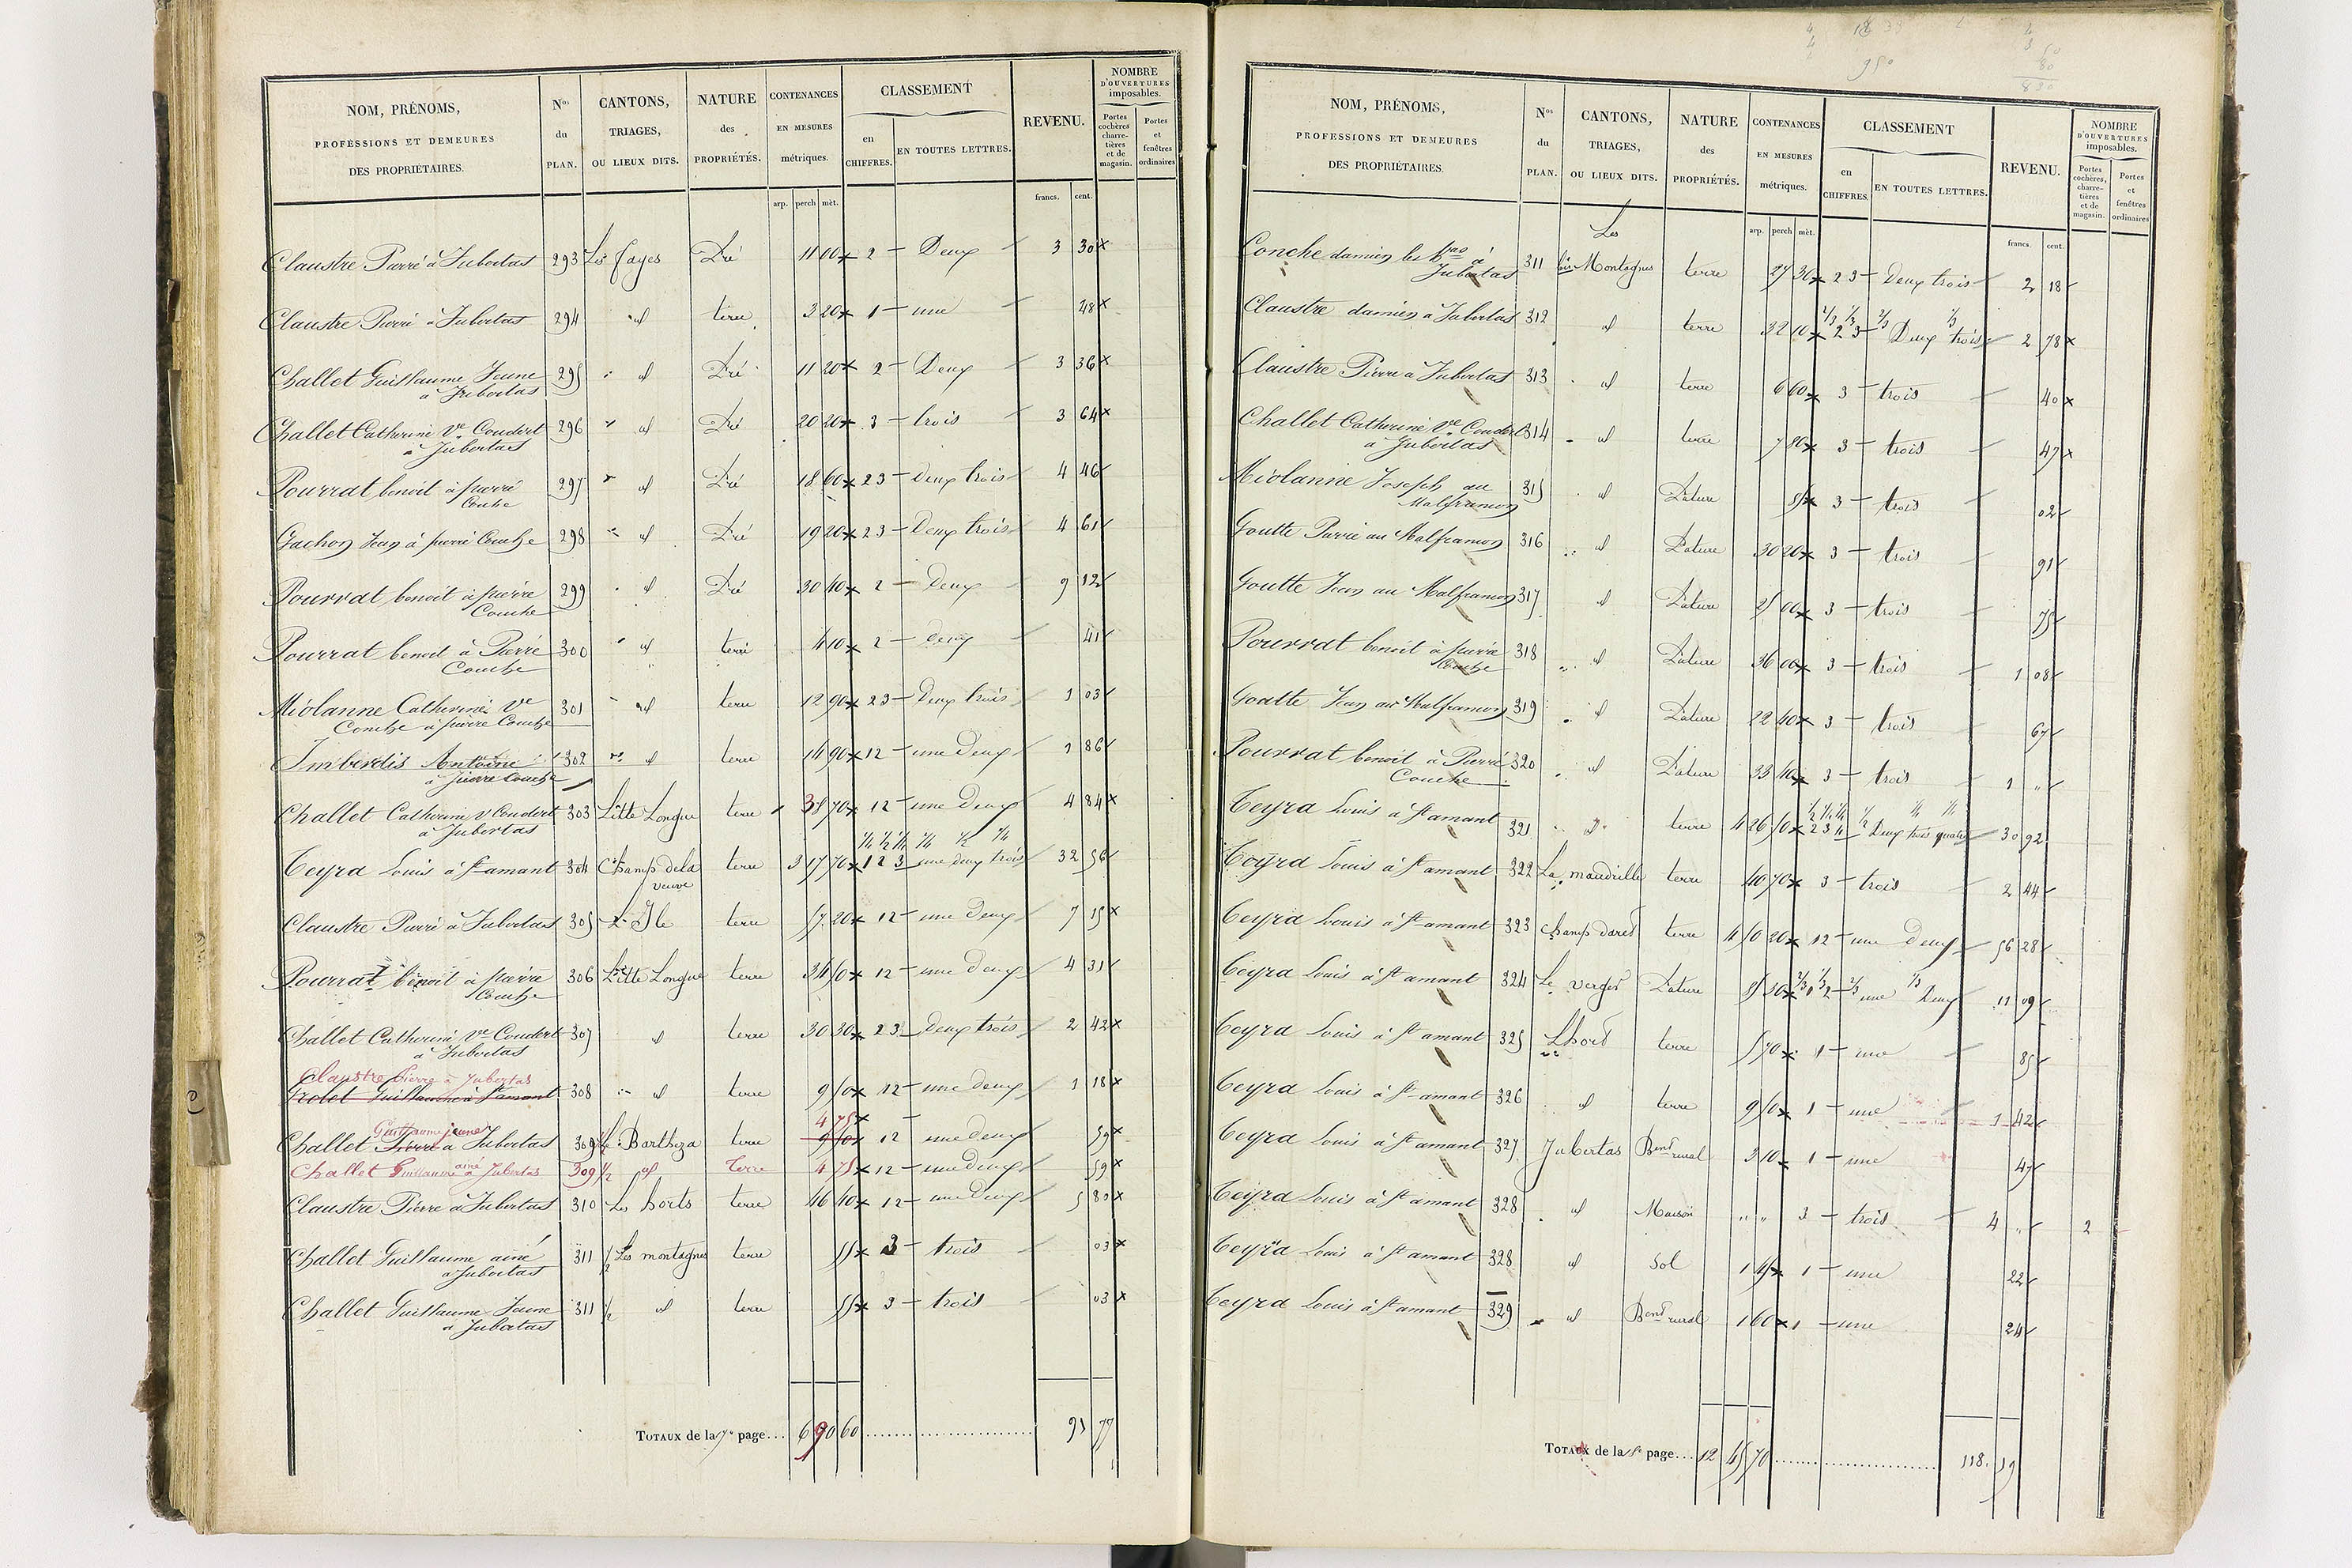 NOM, PRÉNOMS, PROFESSIONS ET DEMEURES DES PROPRIÉTAIRES. Nos du PLAN. CANTONS, TRIAGES, OU LIEUX DITS. NATURE des PROPRIÉTÉS. CONTENANCES EN MESURES métriques. CLASSEMENT en CHIFFRES. EN TOUTES LETTRES. REVENU. NOMBRE D'OUVERTURES imposables. Portes cochères charretières et de magasin. Portes et fenêtres ordinaires
arp. perch mèt. francs. cent.
Claustre Pierre à Jubertas 293 Les fayes Pré 11 00 2 Deux 3 30
Claustre Pierre à Jubertas 294 id terre 3 20 1 une 48
Challet Guillaume Jeune à Jubertas 295 id Pré 11 20 2 Deux 3 36
Challet Catherine Ve Coudert à Jubertas 296 id Pré 20 20 3 trois 3 64
Pourrat benoit à pierre Couche 297 id Pré 18 60 2 3 deux trois 4 46
Gachon Jean à pierre Couche 298 id Pré 19 20 2 3 Deux trois 4 61
Pourrat benoit à pierre Couche 299 id Pré 30 40 2 Deux 9 12
Pourrat benoit à Pierre Couche 300 id terre 4 10 2 deux 41
Miolanne Catherine Ve Conche à pierre Couche 301 id terre 12 90 2 3 Deux trois 1 03
Imberdis Antoine à pierre Couche 302 id terre 14 90 1 2 une Deux 1 86
Challet Catherine V Coudert à Jubertas 303 Litte Longue terre 38 70 1 2 une Deux 4 84
Teyra Louis à St amant 304 Champ de la veuve terre 3 17 70 1/4 1/2 1/4 1 2 3 1/4 1/2 1/4 une deux trois 32 56
Claustre Pierre à Jubertas 305 L'Ile terre 57 20 1 2 une Deux 7 15
Pourrat benoit à pierre Couche 306 Litte Longue terre 34 50 1 2 une deux 4 31
Challet Catherine Ve Coudert à Jubertas 307 id terre 30 30 2 3 Deux trois 2 42
Claustre pierre à Jubertas
Guillaume à St amant 308 id terre 9 50 1 2 une deux 1 18
Guillaume jeune 4 75
Challet Pierre à Jubertas 309 1/2 Bartheza terre 9 50 1 2 une deux 59
Challet Guillaume ainé à Jubertas 309 1/2 id Terre 4 75 1 2 une deux 59
Claustre Pierre à Jubertas 310 Les horts terre 46 40 1 2 une Deux 5 80
Challet Guillaume ainé à Jubertas 311 1/2 Les montagnes terre 55 3 trois 03
Challet Guillaume Jeune à Jubertas 311 1/2 id terre 55 3 trois 03
TOTAUX de la 7e page.... 6 90 60 95 77
NOM, PRÉNOMS, PROFESSIONS ET DEMEURES DES PROPRIÉTAIRES. Nos du PLAN. CANTONS, TRIAGES, OU LIEUX DITS. NATURE des PROPRIÉTÉS. CONTENANCES EN MESURES métriques. CLASSEMENT en CHIFFRES. EN TOUTES LETTRES. REVENU. NOMBRE D'OUVERTURES imposables. Portes cochères, charretières et de magasin. Portes et fenêtres ordinaires
arp. perch mèt. francs. cent.
Conche damien les à Jubertas 311 bis Les Montagnes terre 27 30 2 3 Deux trois 2 18
Claustre damien à Jubertas 312 id terre 32 10 2/3 1/3 2 3 2/3 1/3 Deux trois 2 78
Claustre Pierre à Jubertas 313 id terre 6 60 3 trois 40
Challet Catherine Ve Coudert à Jubertas 314 id terre 7 80 3 trois 47
Miolanne Joseph au Malframon 315 id Pature 3 trois 02
Goutte Pierre au Malframon 316 id Pature 30 20 3 trois 91
Goutte Jean au Malframon 317 id Pature 25 00 3 trois 75
Pourrat benoit à pierre Couche 318 id Pature 36 00 3 trois 1 08
Goutte Jean au Malframon 319 id Pature 22 40 3 trois 67
Pourrat benoit à Pierre Couche 320 id Pature 33 40 3 trois 1 "
Teyra Louis à St amant 321 id terre 4 26 50 1/2 1/4 1/4 2 3 4 1/2 1/4 1/4 Deux trois quatre 30 92
Teyra Louis à St amant 322 La maudrille terre 40 70 3 trois 2 44
Teyra Louis à St amant 323 Champ dares terre 4 50 20 1 2 une Deux 56 28
Teyra Louis à St amant 324 Le verger Pature 85 30 2/3 1/3 1 2 2/3 une 1/3 Deux 11 09
Teyra Louis à St amant 325 Lhort terre 5 70 1 une 85
Teyra Louis à St amant 326 id terre 9 50 1 une 1 42
Teyra Louis à St amant 327 Jubertas Bent rural 3 10 1 une 47
Teyra Louis à St amant 328 id Maison " " 3 trois 4 " 2
Teyra Louis à St amant 328 id Sol 1 45 1 une 22
Teyra Louis à St amant 329 id Bent rural 1 60 1 une 24
TOTAUX de la 8e page.... 12 45 70 118 19